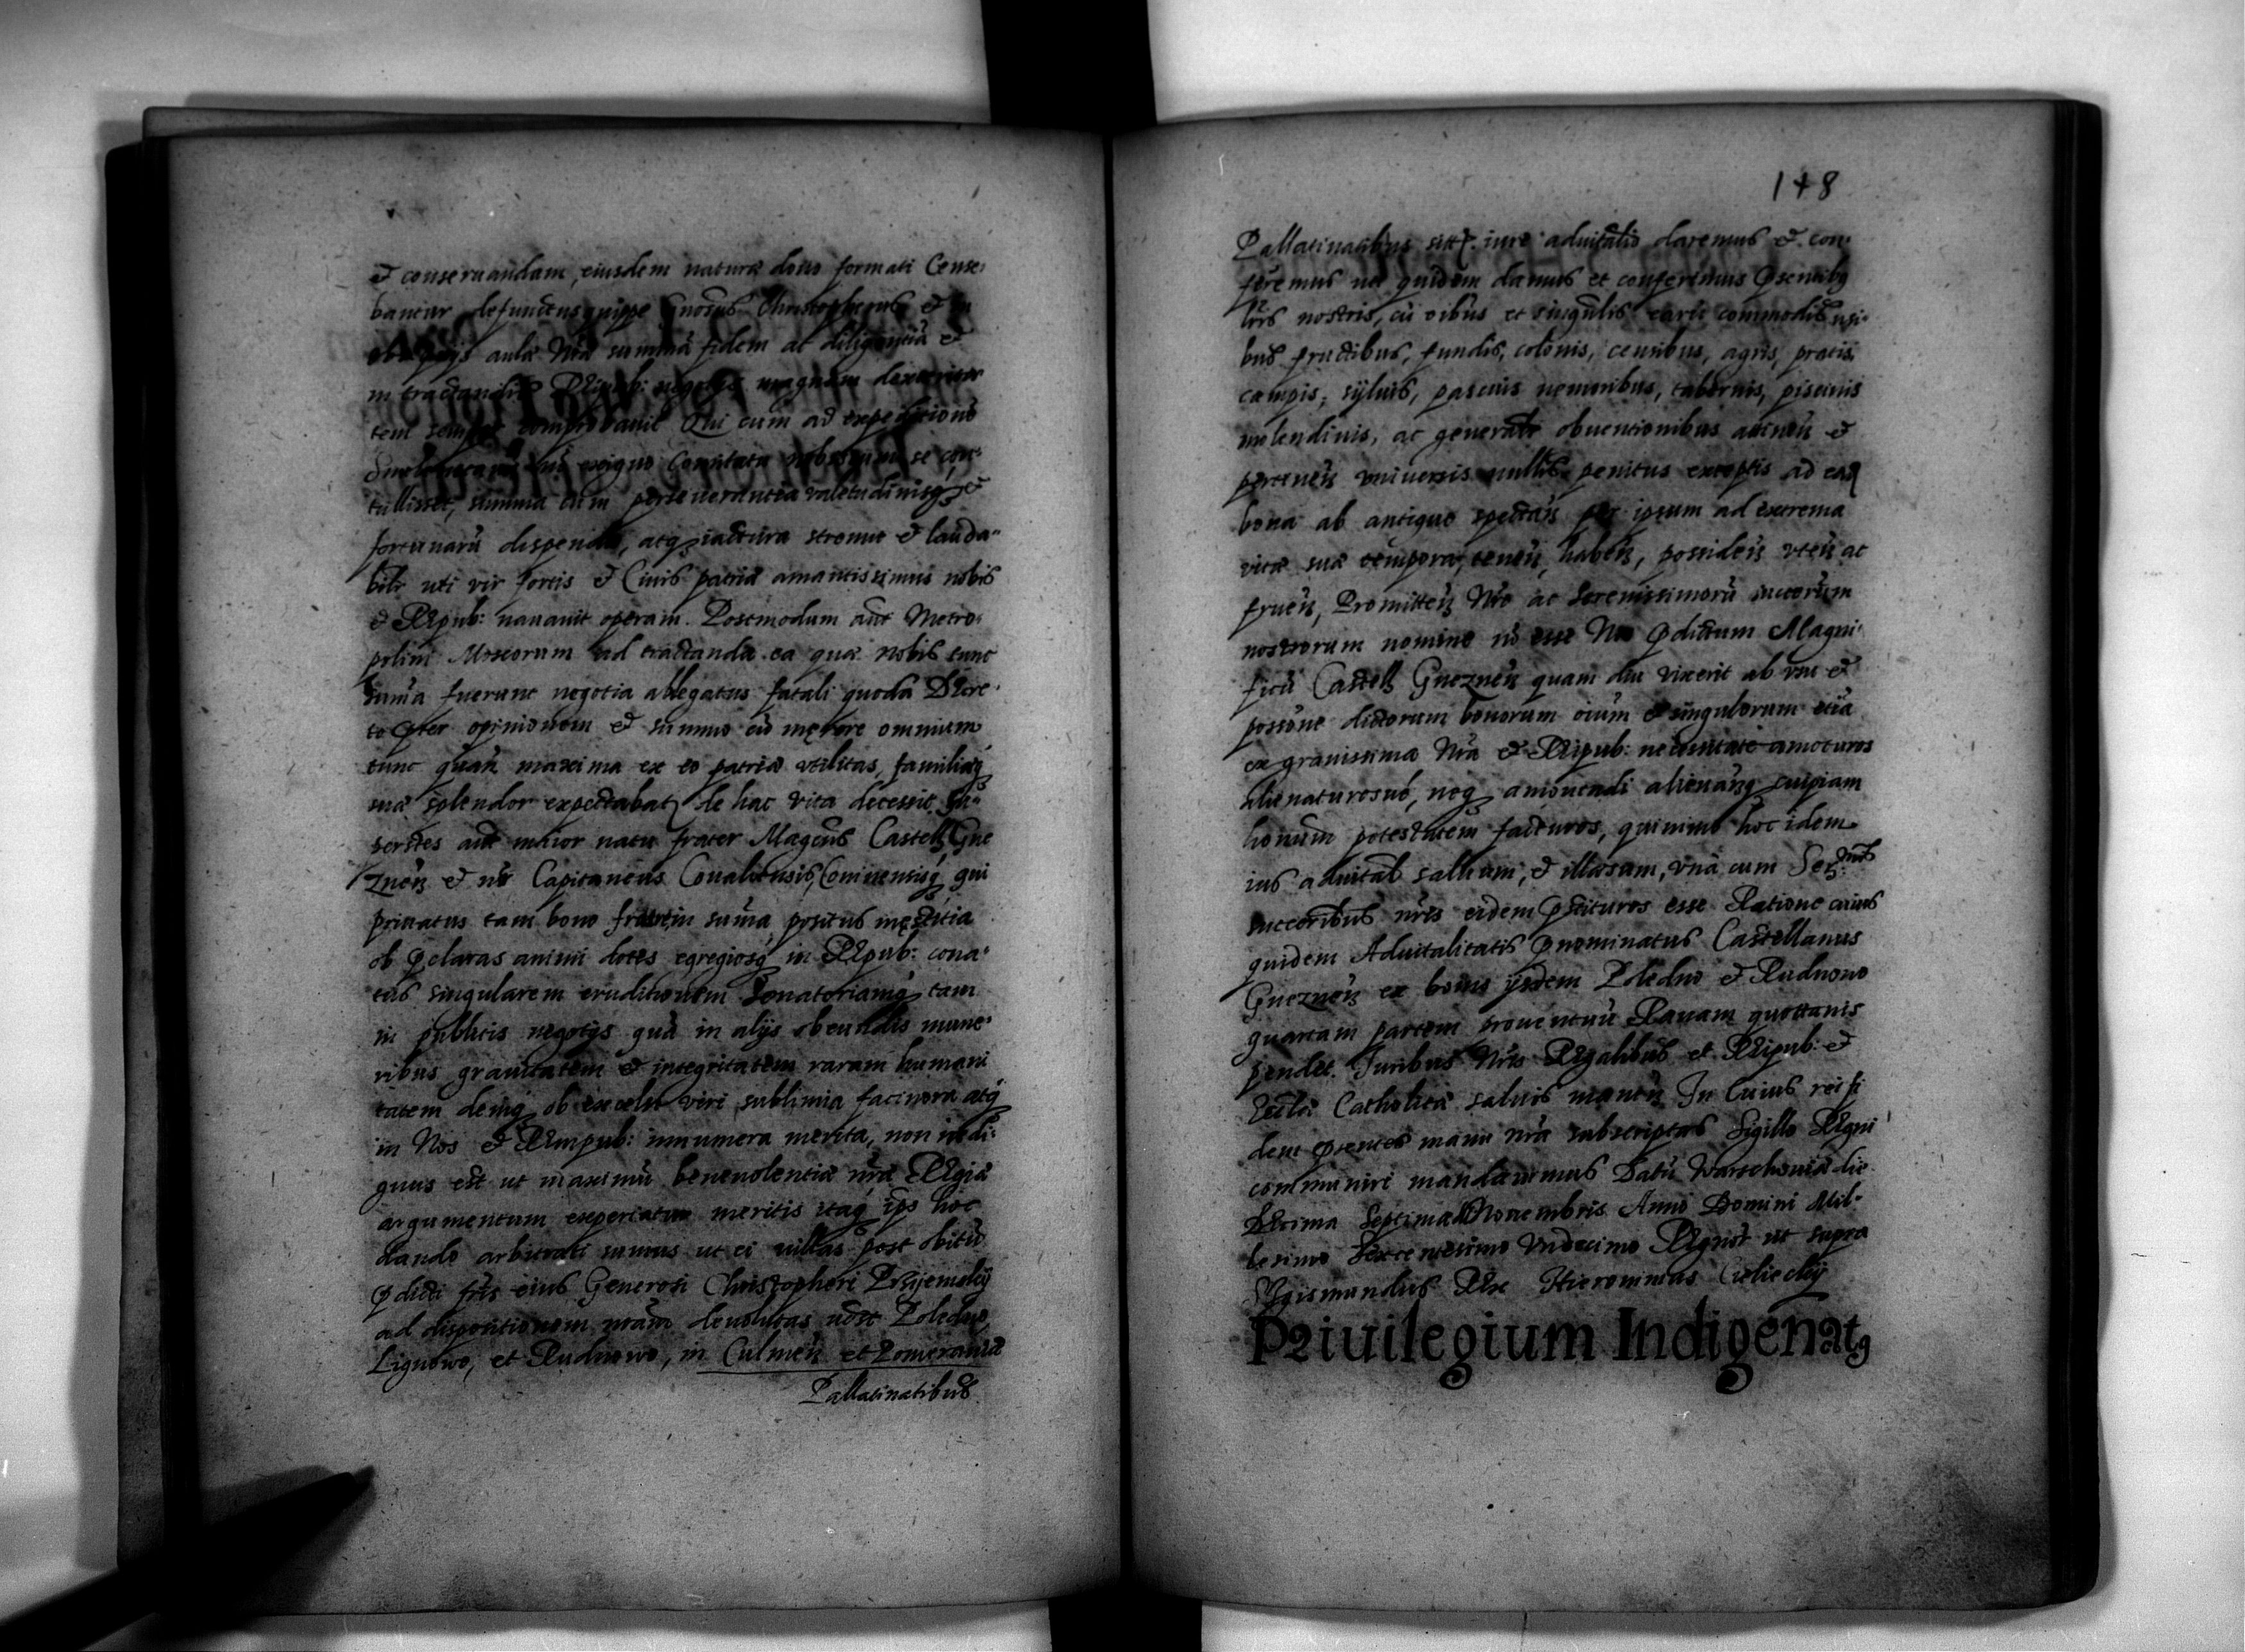 & conseruandam, eiusdem naturæ dono formati Cense-
bantur defunctus quippe Gnosus Christopherus &
aulæ Nræ summa fidem ac diligentiā &
in tractandis Reipub: negotijs magnam dexterita
tem semper comprobauit Qui cum ad expeditionē
exiguo Comitatu se con-
tullisset, summa cum perseuerantia valetudinisq́ &
fortunarū dispendio, atq iactura strenue & lauda-
bilr uti vir fortis & Ciuis patriæ amantissimus nobis
& Rpub: nauauit operam. Postmodum aūt Metro-
polim Moscorum ad tractanda ea quæ nobis tunc
fuerunt negotia ablegatus fatali quoda Decre-
to ꝑter opinionem & summo cū męrore omnium
tunc quan maxima ex eo patriæ vtilitas, familiæq́
suæ splendor expectabat de hac vita decessit, Su-
perstes aūt maior natu frater Magcus Castell Gne
znen & nr Capitaneus Coualensis, Coninensisq́ qui
priuatus tam bono fratrem suma positus męstitia
ob ꝓclaras animi dotes egregiosq́ in Rpub: cona-
tus singularem eruditionem Senatoriamq́ tam
in publicis negotijs quā in alijs obeundis mune-
ribus grauitatem & integritatem raram humani
tatem deniq́ ob excelsi viri sublimia facinora atq́
in Nos & Rempub: innumera merita, non indi-
gnus est ut maximū beneuolentiæ nræ Regiæ
argumentum experiatur meritis itaq́ ips hoc
dando arbitrati sumus ut ei villas post obitū
ꝓdicti fris eius Generosi Christopheri Przijemskij
ad dispositionem nram deuolutas vdst Poledno
Lignowo, et Rudnowo, in Culmen et Pomeraniæ
Pallatinatibus
148
Pallatinatibus sitt. iure aduitalio daremus & con-
feremus uti quidem damus et conferimus ꝓsentibq
lris nostris, cū oibus et singulis earū commodis usi-
bus fructibus, fundis, colonis, censibus, agris, pratis,
campis, syluis, pascuis nemoribus, tabernis, piscinis
molendinis, ac generalr obuentionibus attinen &
pertinen vniuersis nullis penitus exceptis ad ea
bona ab antiquo spectan per ipsum ad extrema
vitæ suæ tempora, tenen, haben, possiden vten ac
fruen, Promitten Nro ac Serenissimorū succorum
nostrorum nomine nō esse Nos ꝓdictum Magni-
ficū Castell Gneznen quam diu vixerit ab vsu &
possone dictorum bonorum oium & singulorum etia
ex grauissima Nra & Reipub: necessitate amoturos
alienaturosue, neq́ amouendi alienandq́ cuipiam
honum potestatem facturos, quinimo hoc idem
ius aduital saluum, & illæsum, vnā cum Ser
succoribus nris eidem ꝓstituros esse Ratione cuius
quidem Aduitalitatis ꝓnominatus Castellanus
Gneznen ex bonis ijsdem Poledno & Rudnowo
quartam partem prouentuū Rauam quottanis
pendet. Iuribus Nris Regalibus et Reipub: &
Eccla Catholicæ saluis manen In Cuius rei fi
dem ꝓsentes manu nra subscriptas Sigillo Regni
communiri mandauimus Datū Warschouiæ die
Decima Septima Nouembris Anno Domini Mil-
lesimo Sexcentesimo Vndecimo Regnor ut supra
Sigismundus Rex Hieronimus Cielieckij
Priuilegium Indigenatq